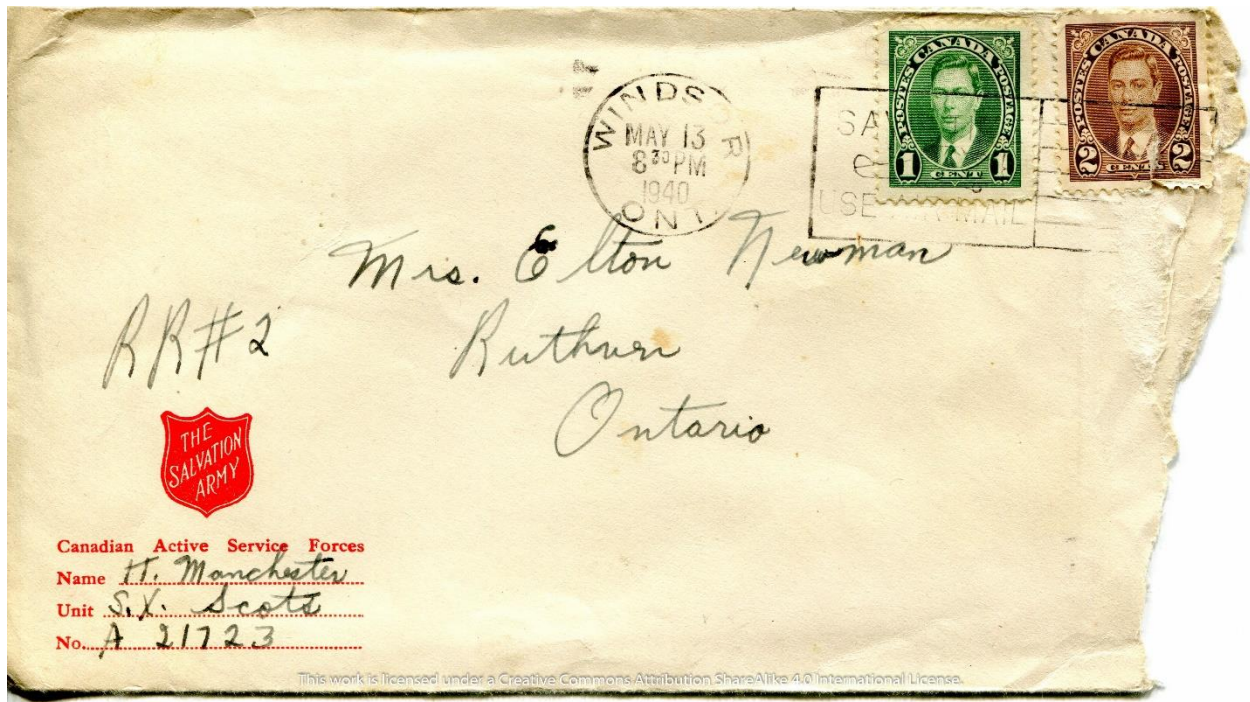 WINDSOR
MAY 13
8 30 PM
1940
ONT.
SA
USE AIR MAIL
POSTES CANADA POSTAGE
1 CENT 1
POSTES CANADA POSTAGE
2 CENTS 2
Mrs. Elton Newman
RR#2 Ruthven
Ontario
THE
SALVATION
ARMY
Canadian Active Service Forces
Name H. Manchester
Unit S.X. Scots
No. A 21723
This work is licensed under a Creative Commons Attribution ShareAlike 4.0 International License.